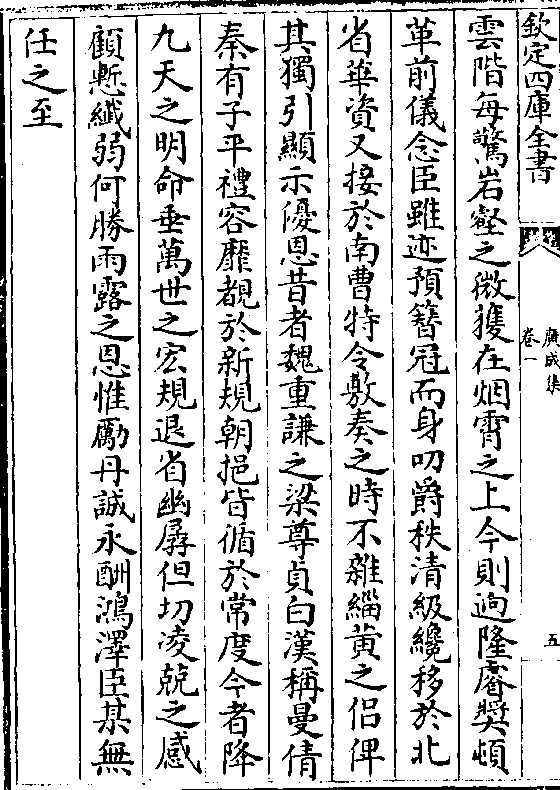 欽定四庫全書
廣成集
卷一
五
雲階每驚岩壑之微獲在烟霄之上今則迥隆睿奬頓
革前儀念臣雖迹預簮冠而身叨爵秩清級纔移於北
省華資又接於南曹特令敷奏之時不雜緇黄之侣俾
其獨引顯示優恩昔者魏重謙之梁尊貞白漢稱曼倩
秦有子平禮容靡覩於新規朝挹皆循於常度今者降
九天之明命垂萬世之宏規退省幽孱但切凌兢之感
顧慙纎弱何勝雨露之恩惟勵丹誠永酬鴻澤臣某無
任之至